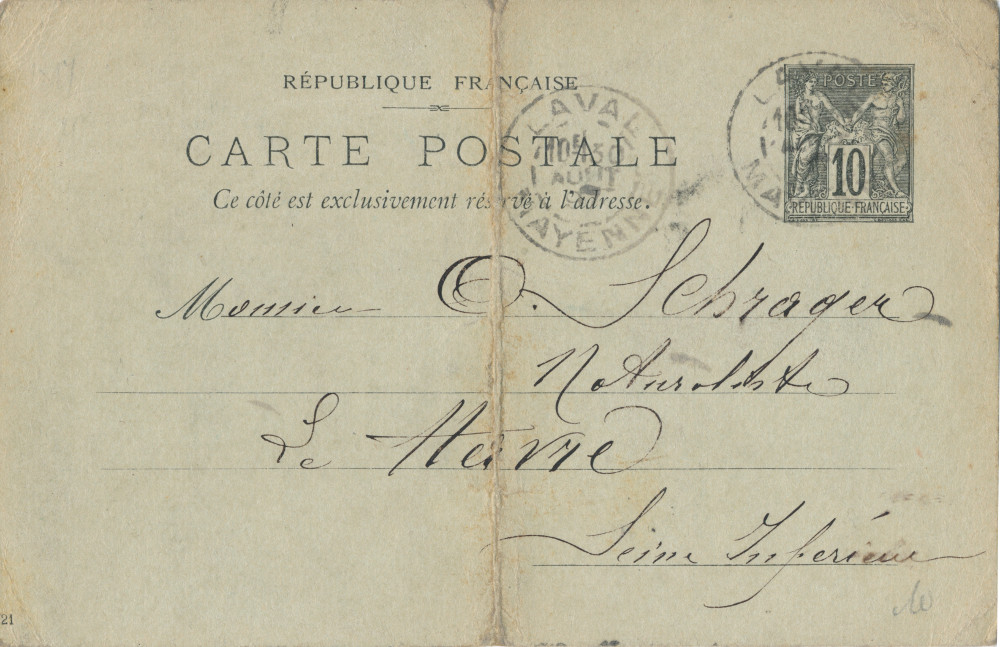 RÉPUBLIQUE FRANÇAISE
CARTE POSTALE
Ce côté est exclusivement réservé à l'adresse.
LAVAL
10E 30
AOUT
MAYENNE
LAVAL
MA
POSTE
10
RÉPUBLIQUE FRANÇAISE
Monsieur O. Schrager
Naturaliste
Le Havre
Seine Inférieure
21